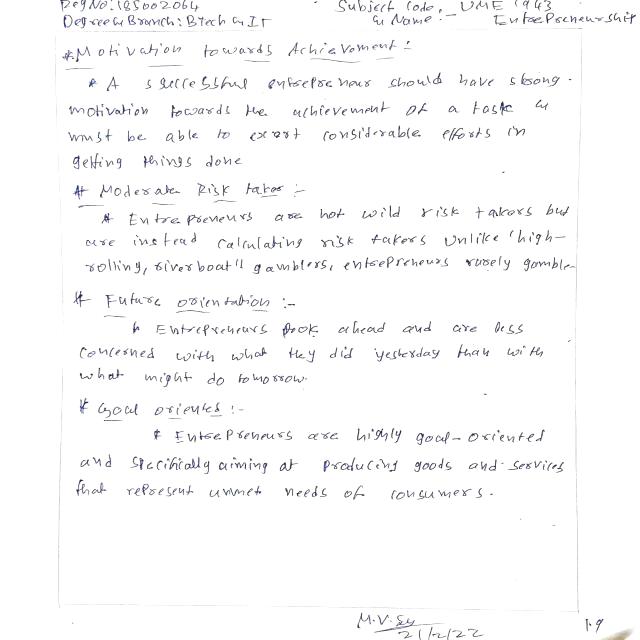 Reg No: 185002064 Subject Code, UME 1943
Degree & Branch: BTech & IT & Name :- Entrepreneurship
* Motivation towards Achievement :
* A successful entreprenour should have strong
motivation towards the achievement of a task &
must be able to exert considerable efforts in
getting things done
# Moderate Risk taker :-
* Entrepreneurs are not wild risk takers but
are instead calculating risk takers unlike "high-
rolling, riverboat" gamblers, entrepreneurs rarely gamble
# Future orientation :-
* Entrepreneurs look ahead and are less
concerned with what they did yesterday than with
what might do tomorrow.
* Goal orientes :-
* Entrepreneurs are highly goal-oriented
and specifically aiming at producing goods and services
that represent unmet needs of consumers.
M.V.
21/2/22